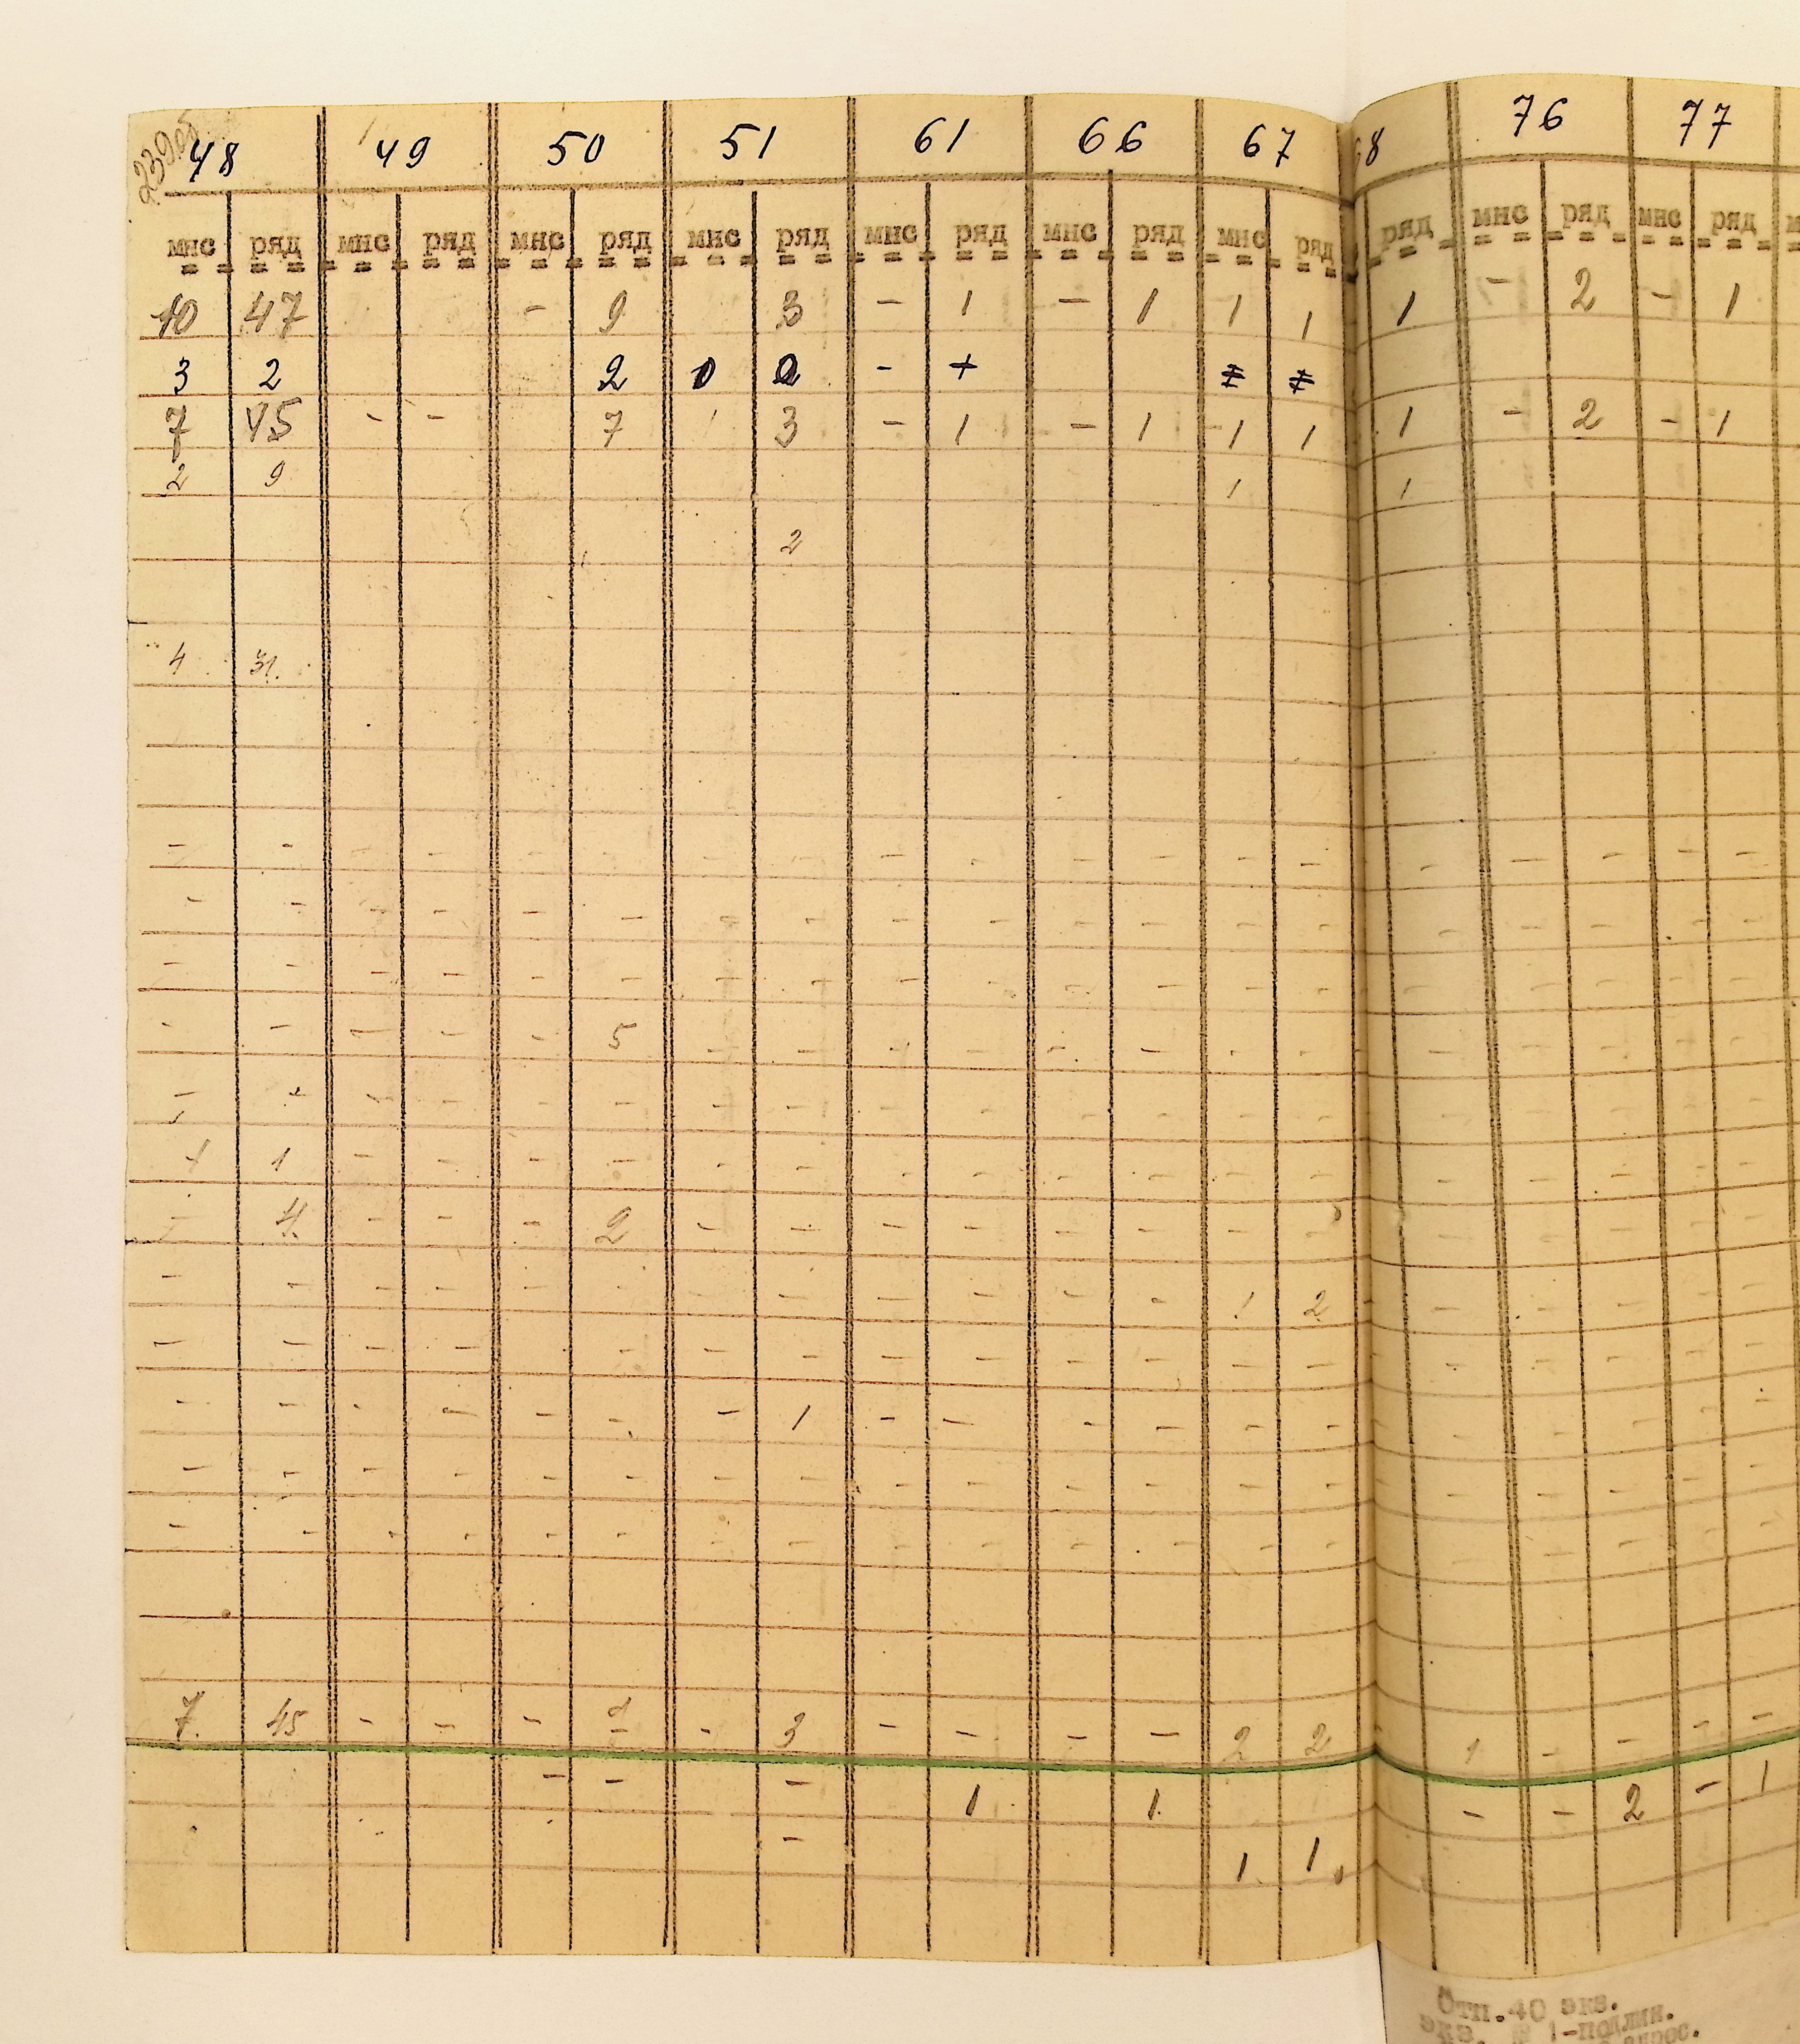 239об
48 49 50 51 61 66 67 68 76 77
мнс ряд мнс ряд мнс ряд мнс ряд мнс ряд мнс ряд мнс ряд ряд мнс ряд мнс ряд
10 47 - 9 3 - 1 - 1 1 1 1 - 2 - 1
3 2 2 0 - +
7 45 - - 7 3 - 1 - 1 - 1 1 1 - 2 - 1
2 9 1 1
2
4 31.
- - - - - - - - - - - - - - - - - - -
- - - - - - - - - - - - - - - - - -
- - - - - - - - - - - - - - - -
- - - - - 5 - - - - - - - - - - - - -
- - - - - - - - - - - - - - - - -
1 1 - - - - - - - - - - - - - - - -
- 4 - - - 2 - - - - - - - - - - -
- - - - - - - - - - - - 1 2 - - - - -
- - - - - - - - - - - - - - - - - -
- - - - - - - 1 - - - - - - - - - - -
- - - - - - - - - - - - - - - - - - -
- - - - - - - - - - - - - - - - - - -
7 45 - - - - 3 - - - - 2 2 1 - - - -
- - - 1 1 - - 2 - 1
- 1 1
Отп.40 экз.
экз. № 1-подлин.